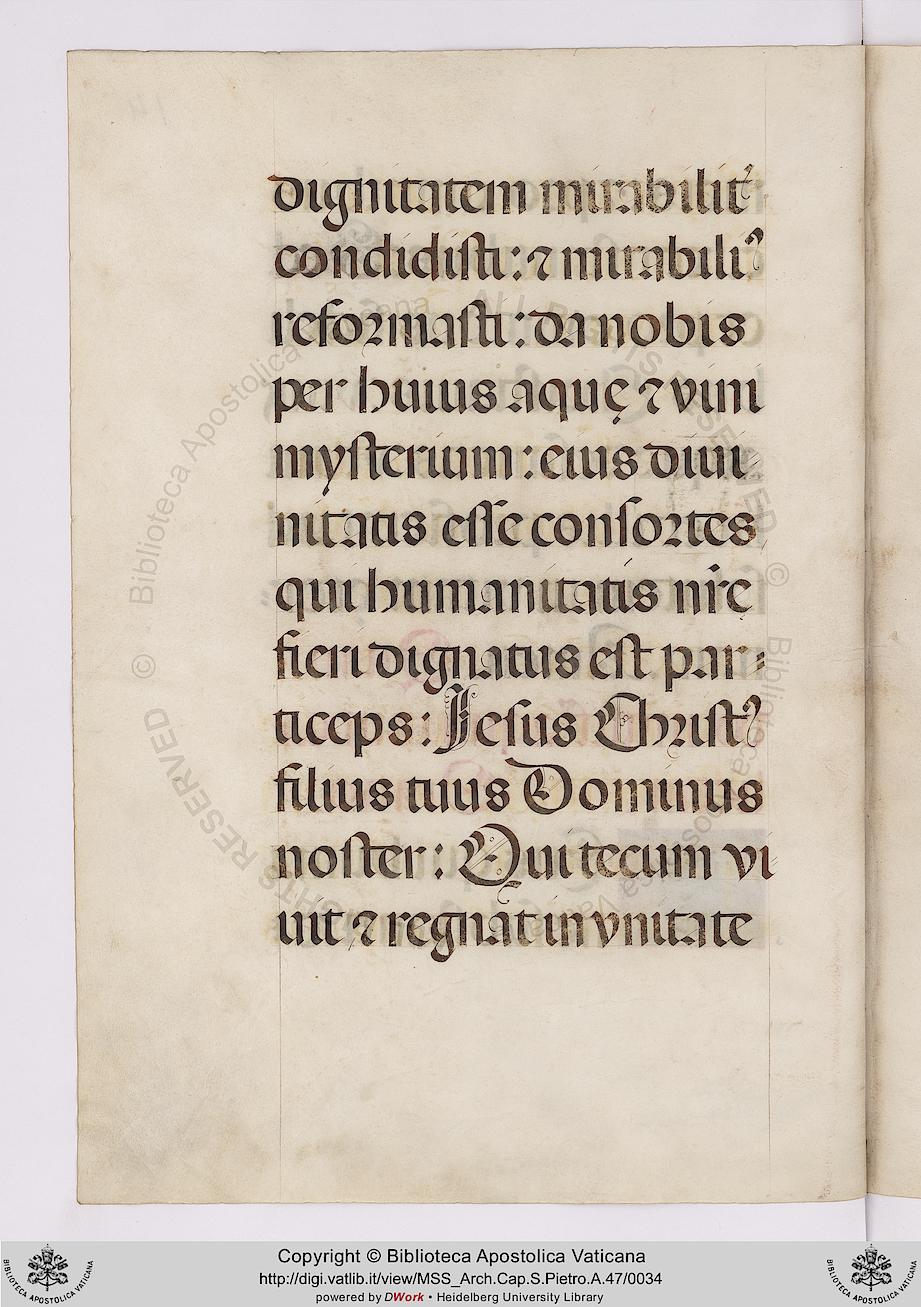 dignitatem mirabilit᾽
condidisti: ⁊ mirabiliꝰ
reformasti: da nobis
per huius aquę ⁊ vini
mysterium: eius diui⸗
nitatis esse consortes
qui humanitatis nr̄e
fieri dignatus est par⸗
ticeps: Jesus Christꝰ
filius tuus Dominus
noster: Qui tecum vi
uit ⁊ regnat in vnitate
© Biblioteca Apostolica Vaticana ALL RIGHTS RESERVED
© Biblioteca Apostolica Vaticana ALL RIGHTS RESERVED
BIBLIOTECA APOSTOLICA VATICANA
Copyright © Biblioteca Apostolica Vaticana
http://digi.vatlib.it/view/MSS_Arch.Cap.S.Pietro.A.47/0034
powered by DWork • Heidelberg University Library
BIBLIOTECA APOSTOLICA VATICANA